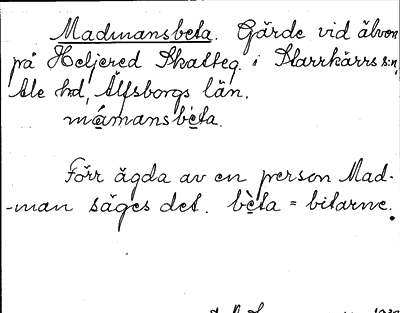 Madmansbeta. Gärde vid älven
på Heljered Skatteg. i Starrkärrs s:n,
Ale hd, Älfsborgs län.
mámansbèta.
Förr ägda av en person Mad-
-man säges det. bèta = bitarne.